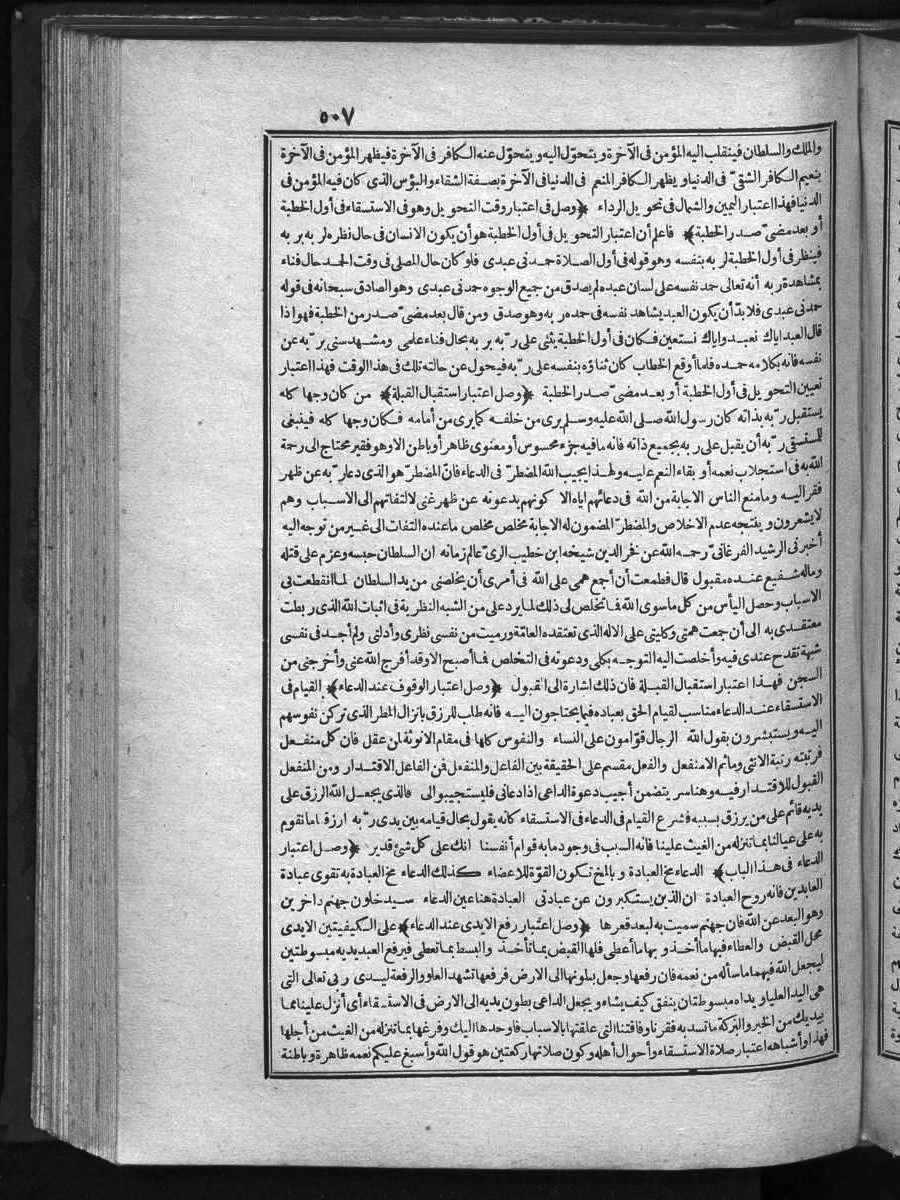 ٥٠٧
والملك والسلطان فينقلب اليه المؤمن فى الآخرة و يتحوّل اليه و يتحوّل عنه الكافر فى الآخرة فيظهر المؤمن فى الآخرة
بنعيم الكافر الشقىّ فى الدنيا و يظهر الكافر المنعم فى الدنيا فى الآخرة بصفة الشقاء والبؤس الذى كان فيه المؤمن فى
الدنيا فهذا اعتبار اليمين والشمال فى تحويل الرداء ﴿وصل فى اعتبار وقت التحويل وهو فى الاستسقاء فى أول الخطبة
أو بعد مضىّ صدر الخطبة﴾ فاعلم أن اعتبار التحويل فى أول الخطبة هو أن يكون الانسان فى حال نظره لربه بربه
فينظر فى أول الخطبة لربه بنفسه وهو قوله فى أول الصلاة حمدنى عبدى فلو كان حال المصلى فى وقت الحمد حال فناء
بمشاهدة ربه أنه تعالى حمد نفسه على لسان عبده لم يصدق من جميع الوجوه حمدنى عبدى وهو الصادق سبحانه فى قوله
حمدنى عبدى فلا بدّ أن يكون العبد يشاهد نفسه فى حمده ربه وهو صدق ومن قال بعد مضىّ صدر من الخطبة فهو اذا
قال العبد اياك نعبد واياك نستعين فكان فى أول الخطبة يثنى على ربّه بربه بحال فناء علمى ومشهد سنى بربّه عن
نفسه فانه بكلامه حمده فلما أوقع الخطاب كان ثناؤه بنفسه على ربّه فيحول عن حالته تلك فى هذا الوقت فهذا اعتبار
تعيين التحويل فى أول الخطبة أو بعد مضىّ صدر الخطبة ﴿وصل اعتبار استقبال القبلة﴾ من كان وجها كله
يستقبل ربّه بذاته كان رسول الله صلى الله عليه وسلم يرى من خلفه كما يرى من أمامه فكان وجها كله فينبغى
للمستسقى ربّه أن يقبل على ربه بجميع ذاته فانه ما فيه جزء محسوس أو معنوى ظاهرا أو باطن الا وهو فقير محتاج الى رحمة
الله به فى استجلاب نعمه أو بقاء النعم عليه ولهذا يجيب الله المضطرّ فى الدعاء فانّ المضطرّ هو الذى دعا ربّه عن ظهر
فقر اليه وما منع الناس الاجابة من الله فى دعائهم اياه الا كونهم يدعونه عن ظهر غنى لالتفاتهم الى الاسباب وهم
لا يشعرون و ينتجه عدم الاخلاص والمضطرّ المضمون له الاجابة مخلص مخلص ما عنده التفات الى غير من توجه اليه
أخبرنى الرشيد الفرغانىّ رحمه الله عن فخر الدين شيخه ابن خطيب الرىّ عالم زمانه ان السلطان حبسه وعزم على قتله
وماله شفيع عنده مقبول قال فطمعت أن أجمع همى على الله فى أمرى أن يخلصنى من يد السلطان لما انقطعت بى
الاسباب وحصل اليأس من كل ما سوى الله فما تخلص لى ذلك لما يرد على من الشبه النظرية فى اثبات الله الذى ربطت
معتقدى به الى أن جمعت همتى وكليتى على الاله الذى تعتقده العامّة ورميت من نفسى نظرى وأدلتى ولم أجد فى نفسى
شبهة تقدح عندى فيه وأخلصت اليه التوجه بكلى ودعوته فى التخلص فما أصبح الا وقد أفرج الله عنى وأخرجنى من
السجن فهذا اعتبار استقبال القبلة فان ذلك اشارة الى القبول ﴿وصل اعتبار الوقوف عند الدعاء﴾ القيام فى
الاستسقاء عند الدعاء مناسب لقيام الحق بعباده فيما يحتاجون اليه فانه طلب للرزق بانزال المطر الذى تركن نفوسهم
اليه ويستبشرون بقول الله الرجال قوّامون على النساء والنفوس كلها فى مقام الانوثة لمن عقل فان كل منفعل
فرتبته رتبة الانثى وما ثم الا منفعل والفعل مقسم على الحقيقة بين الفاعل والمنفعل فمن الفاعل الاقتدار ومن المنفعل
القبول للاقتدار فيه وهنا سر يتضمن أجيب دعوة الداعى اذا دعانى فليستجيبوا لى فالذى يجعل الله الرزق على
يديه قائم على من يرزق بسببه فشرع القيام فى الدعاء فى الاستسقاء كانه يقول بحال قيامه بين يدى ربّه ارزقنا ما نقوم
به على عيالنا بما تنزله من الغيث علينا فانه السبب فى وجود ما به قوام أنفسنا انك على كل شئ قدير ﴿وصل اعتبار
الدعاء فى هذا الباب﴾ الدعاء مخ العبادة و بالمخ تكون القوّة للاعضاء كذلك الدعاء مخ العبادة به تقوى عبادة
العابدين فانه روح العبادة ان الذين يستكبرون عن عبادتى العبادة هنا عين الدعاء سيدخلون جهنم داخرين
وهو البعد عن الله فان جهنم سميت به لبعد قعرها ﴿وصل اعتبار رفع الايدى عند الدعاء﴾ على الكيفيتين الايدى
محل القبض والعطاء فيها ما أخذ و بها ما أعطى فلها القبض بما تأخذ والبسط بما تعطى فيرفع العبد يديه مبسوطتين
ليجعل الله فيهما ما سأله من نعمه فان رفعها وجعل بطونها الى الارض فرفعها تشهد العلو والرفعة ليدى ربى تعالى التى
هى اليد العليا ويداه مبسوطتان ينفق كيف يشاء و يجعل الداعى بطون يديه الى الارض فى الاستسقاء أى أنزل علينا مما
بيديك من الخير والبركة ما تسد به فقرنا وفاقتنا التى علقتها بالاسباب فاوحدها اليك وفرغها بما تنزله من الغيث من أجلها
فهذا وأشباهه اعتبار صلاة الاستسقاء وأحوال أهله وكون صلاتها ركعتين هو قول الله وأسبغ عليكم نعمه ظاهرة و باطنة